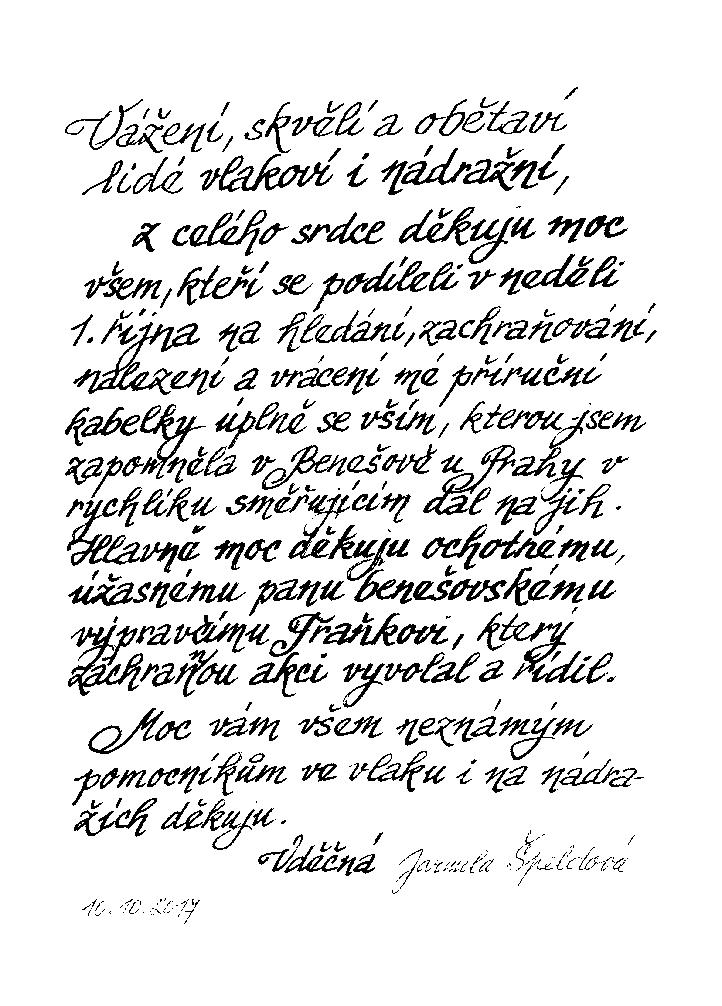 Vážení, skvělí a obětaví
lidé vlakoví i nádražní,
z celého srdce děkuju moc
všem, kteří se podíleli v neděli
1. října na hledání, zachraňování,
nalezení a vrácení mé příruční
kabelky úplně se vším, kterou jsem
zapomněla v Benešově u Prahy v
rychlíku směřujícím dál na jih.
Hlavně moc děkuju ochotnému,
úžasnému panu benešovskému
výpravčímu Fraňkovi, který
záchrannou akci vyvolal a řídil.
Moc vám všem neznámým
pomocníkům ve vlaku i na nádra-
žích děkuju.
Vděčná Jarmila Špeldová
10.10.2017